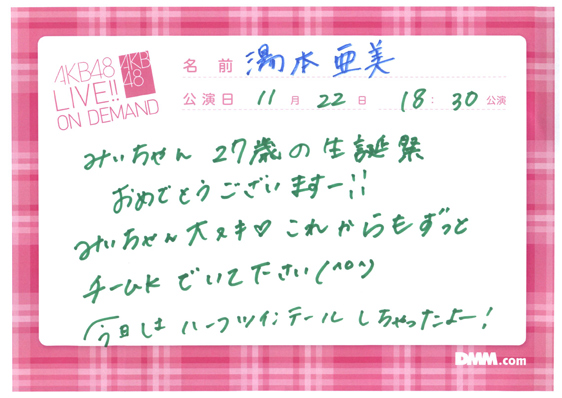 AKB48
LIVE!!
ON DEMAND
AKB
48
名前 湯本亜美
公演日 11月22日 18:30公演
みぃちゃん 27歳の生誕祭
おめでとうございますー!!
みぃちゃん大スキ♡これからもずっと
チームKでいて下さい(^o^)
今日はハーフツインテールしちゃったよー!
DMM.com